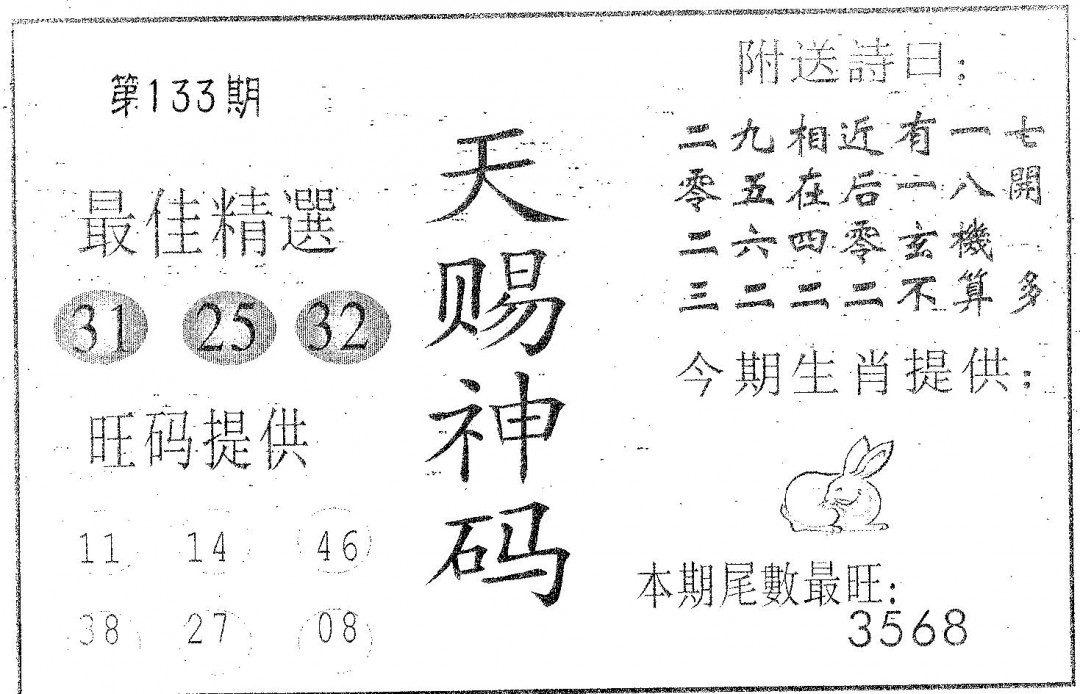 第133期
最佳精選
31 25 32
旺码提供
11 14 46
38 27 08
天赐神码
附送詩曰：
二九相近有一七
零五在后一八開
二六四零玄機
三二二二不算多
今期生肖提供：
本期尾數最旺：
3568